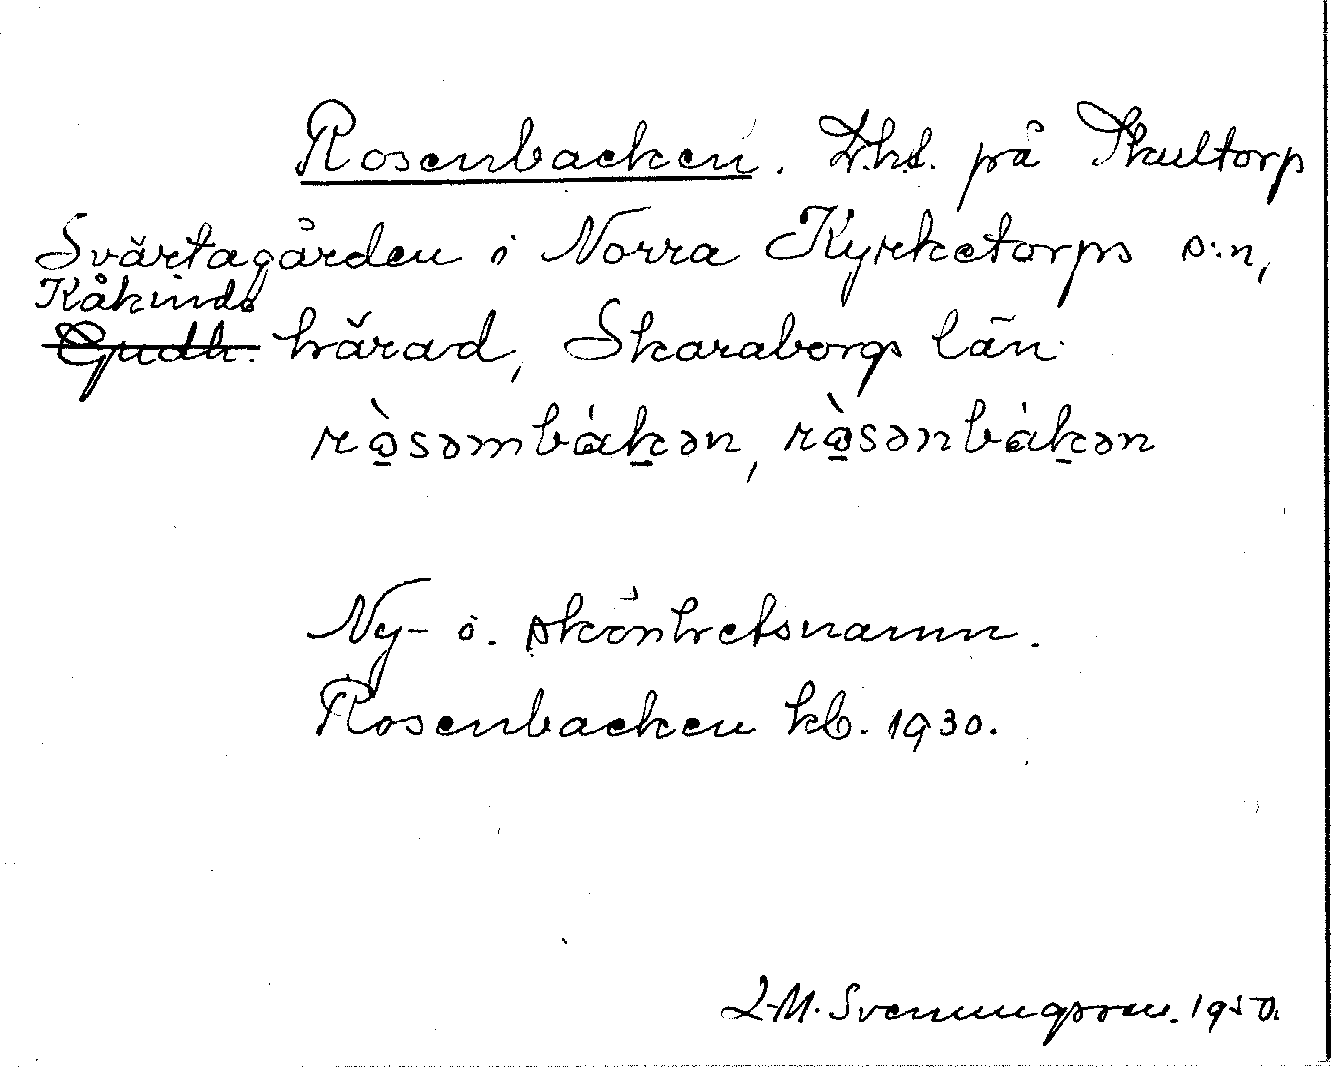 Rosenbacken. Lht. på Skultorp
Svärtagården i Norra Kyrketorps s:n,
Kåkinds
Gudh. härad, Skaraborgs län
rò̱səmbákən, rò̱sənbákən
Ny- o. skönhetsnamn.
Rosenbacken kb. 1930.
L-M. Svenungsson. 1950.